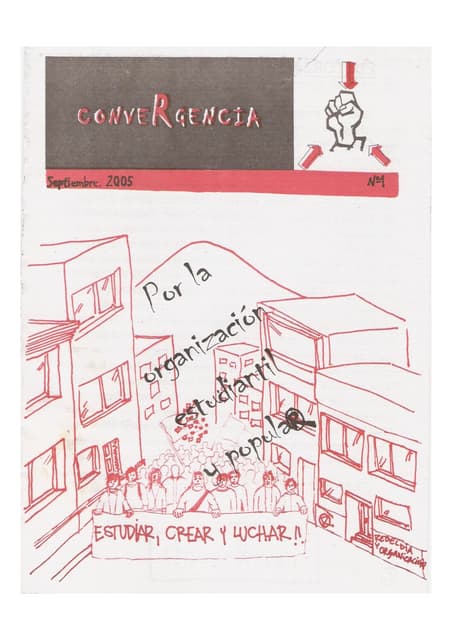 CONVERGENCIA
Septiembre. 2005
Nº1
Por la
organización
estudiantil
y popular
ESTUDIAR, CREAR Y LUCHAR!!
REBELDIA
Y ORGANIZACIÓN